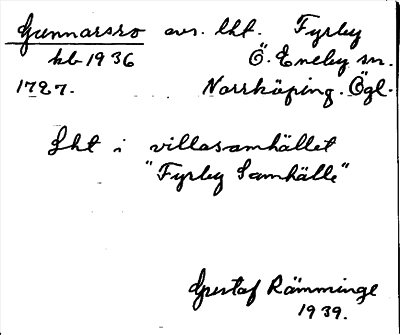 Gunnarsro avs. lht. Fyrby
kb 1936 Ö. Eneby sn.
1727. Norrköping. Ögl.
Lht i villasamhället
"Fyrby Samhälle"
Gustaf Rämminge
1939.